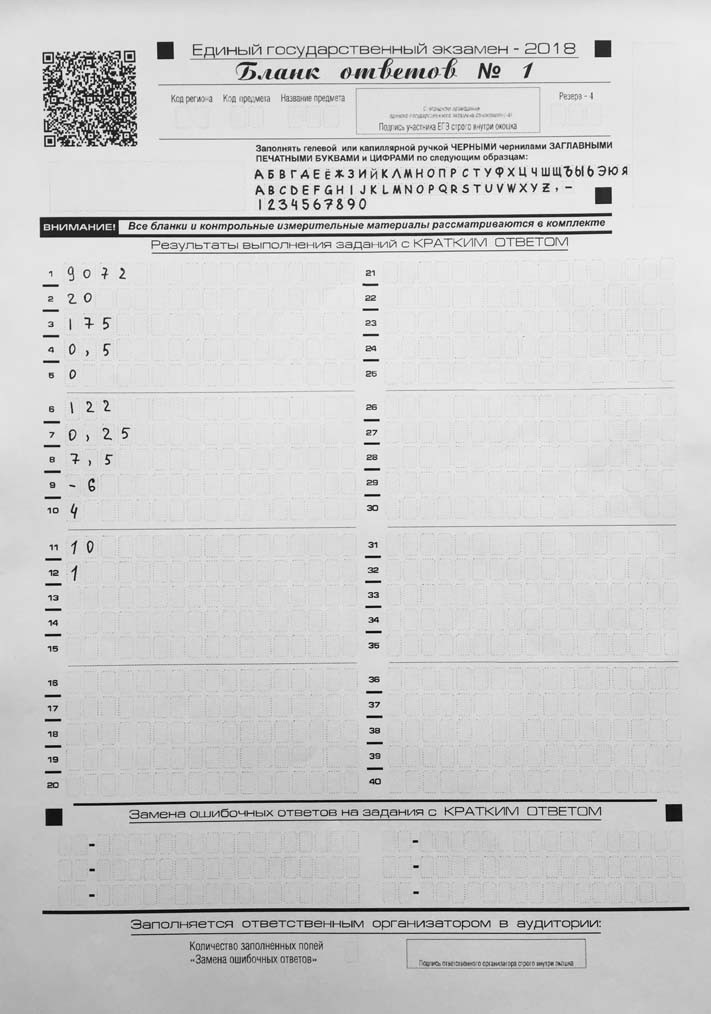 Единый государственный экзамен - 2018
Бланк ответов № 1
Код региона Код предмета Название предмета
Резерв - 4
Подпись участника ЕГЭ строго внутри окошка
Заполнять гелевой или капиллярной ручкой ЧЕРНЫМИ чернилами ЗАГЛАВНЫМИ
ПЕЧАТНЫМИ БУКВАМИ и ЦИФРАМИ по следующим образцам:
АБВГДЕЁЖЗИЙКЛМНОПРСТУФХЦЧШЩЪЫЬЭЮЯ
ABCDEFGHIJKLMNOPQRSTUVWXYZ,-
1234567890
ВНИМАНИЕ! Все бланки и контрольные измерительные материалы рассматриваются в комплекте
Результаты выполнения заданий с КРАТКИМ ОТВЕТОМ
1 9072 21
2 20 22
3 175 23
4 0,5 24
5 0 25
6 122 26
7 0,25 27
8 7,5 28
9 -6 29
10 4 30
11 10 31
12 1 32
13 33
14 34
15 35
16 36
17 37
18 38
19 39
20 40
Замена ошибочных ответов на задания с КРАТКИМ ОТВЕТОМ
- -
- -
- -
Заполняется ответственным организатором в аудитории:
Количество заполненных полей
«Замена ошибочных ответов»
Подпись ответственного организатора строго внутри окошка